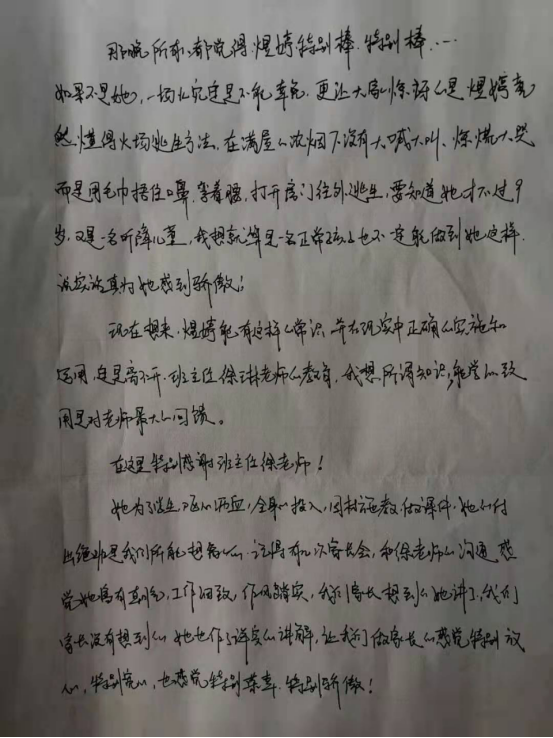 那晚所有人都觉得煜婷特别棒.特别棒.…
如果不是她,一场火灾定是不能幸免.更让大家惊讶的是煜婷竟
然懂得火场逃生方法.在满屋的浓烟下没有大喊大叫、惊慌大哭
而是用毛巾捂住口鼻.弯着腰,打开房门往外逃生,要知道她才不过9
岁.又是一名听障儿童,我想就算是一名正常孩子也不一定能做到她这样.
说实话真为她感到骄傲!
现在想来.煜婷能有这样的常识.并在现实中正确的实施和
运用,定是离不开.班主任徐琳老师的教育.我想所谓知识,能学以致
用是对老师最大的回馈。
在这里特别感谢班主任徐老师!
她为了学生呕心沥血,全身心投入,因材施教.做课件.她的付
出绝非是我们所能想象的.记得有几次家长会,和徐老师的沟通感
觉她富有朝气,工作细致,作风踏实,我们家长想到的她讲了,我们
家长没有想到的她也作了详实的讲解,让我们做家长的感觉特别放
心,特别宽心,也感觉特别荣幸.特别骄傲!